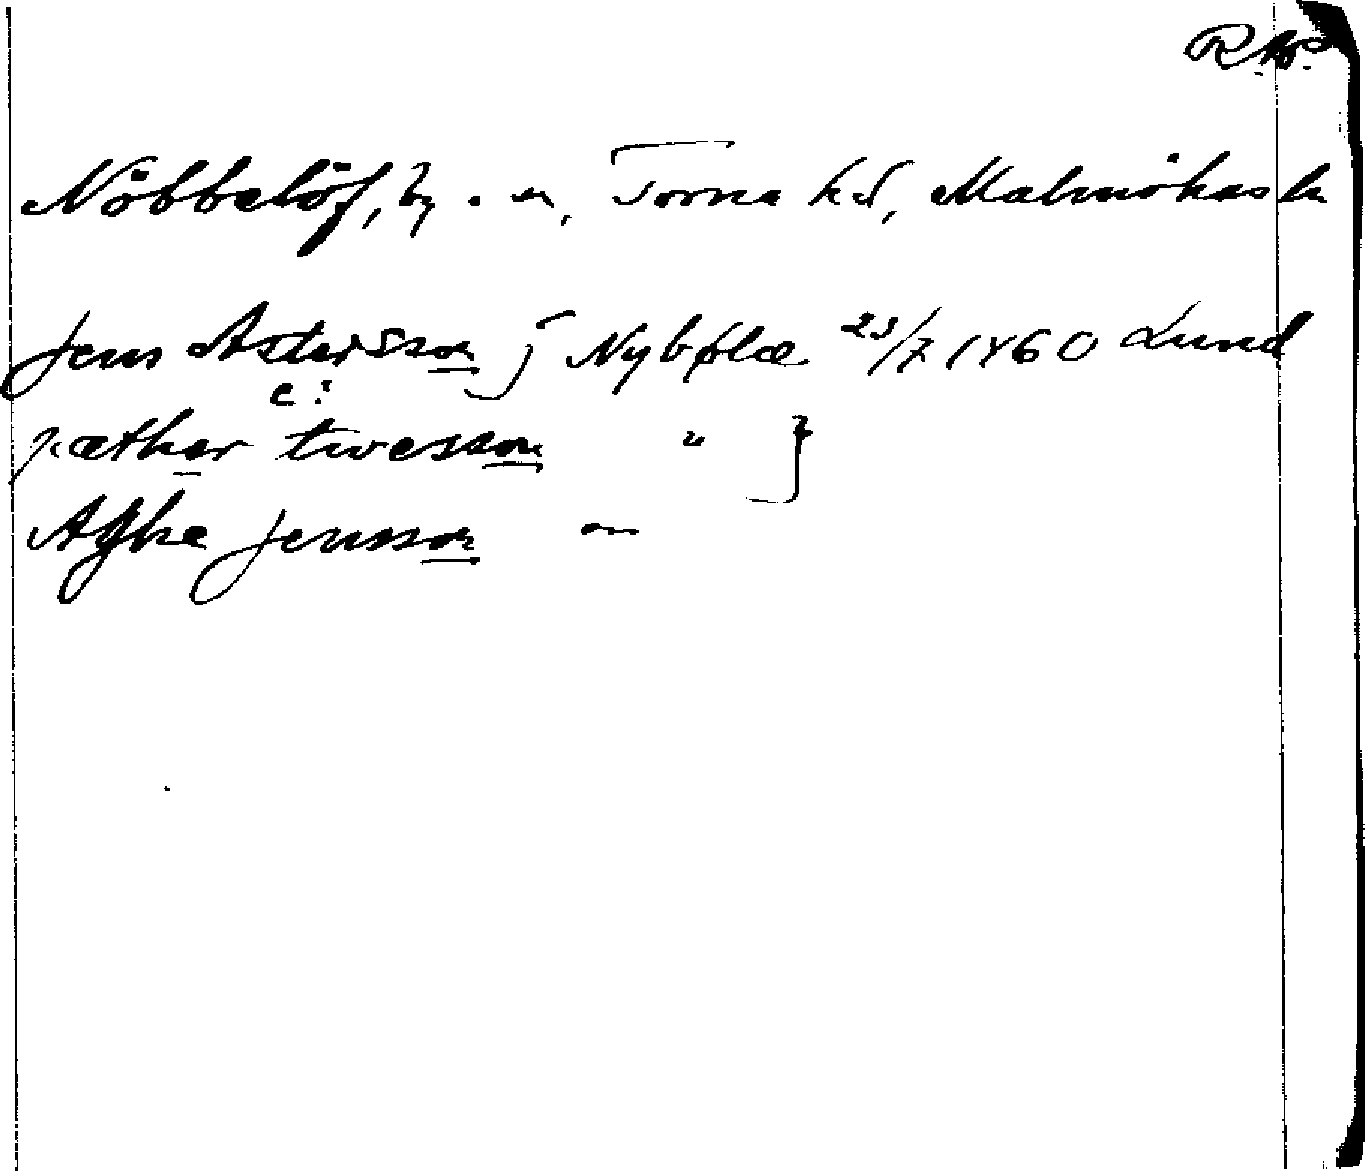 R.Ap.
Nöbbelöf, by o. sn, Torna hd, Malmöhus ln
Jens Astersson j Nybølæ 23/7 1460 Lund
c:
pæther twesson " }
Aghe Jensson "